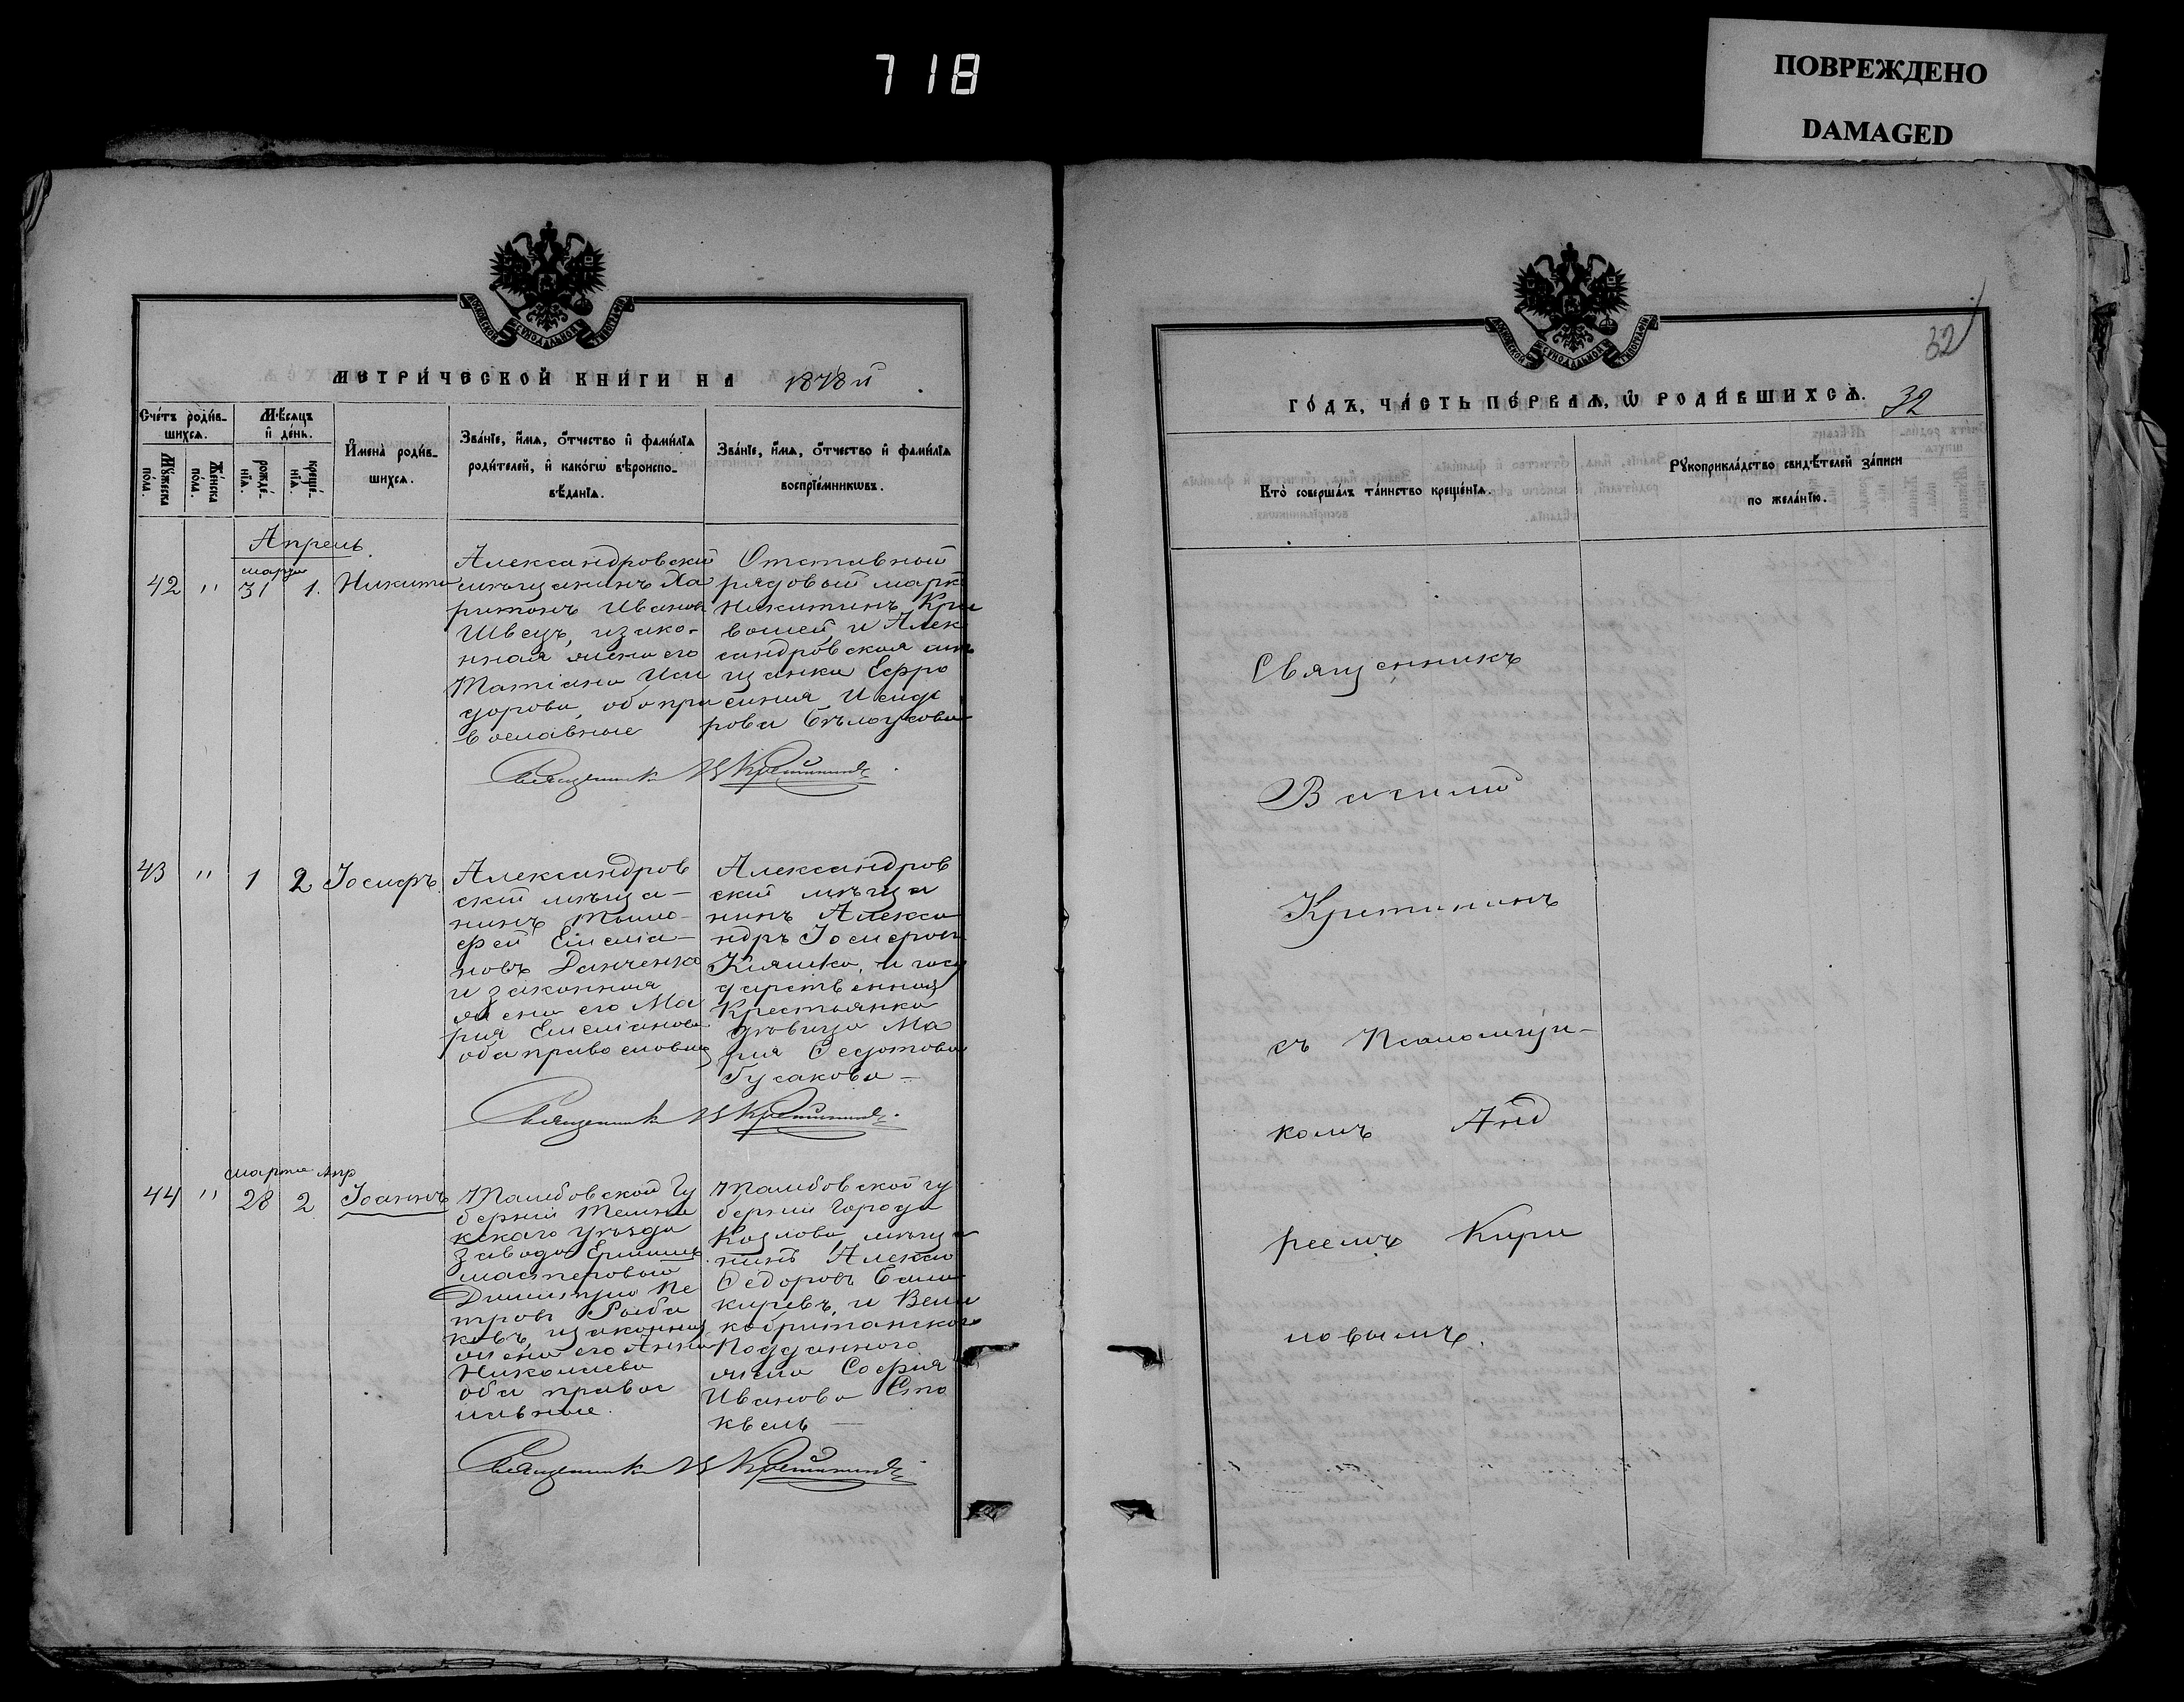 718
ПОВРЕЖДЕНО
DAMAGED
МОСКОВСКОЙ СѴНОДАЛЬНОЙ ТИПОГРАФІИ
МЕТРИ́ЧЕСКОЙ КНИ́ГИ НА 1878 й
Сче́тъ роди́в-
шихсѧ.
Мꙋ́жеска по́ла.
Же́нска по́ла.
Мѣ́сѧцъ
и҆ де́нь.
рожде́-
нїѧ.
креще́-
нїѧ.
И҆мена̀ роди́в-
шихсѧ.
Зва́нїе, и҆́мѧ, ѻ҆́тчество и҆ фами́лїѧ
роди́телей, и҆ како́гѡ вѣроиспо-
вѣ́данїѧ.
Зва́нїе, и҆́мѧ, ѻ҆́тчество и҆ фами́лїѧ
воспрїе́мникѡвъ.
Апрель
марта
42 " 31 1. Никита
Александровскій
мѣщанинъ Ха
ритонъ Иванов
Швецъ, и зако-
нная жена его
Татіана Иси
дорова, оба пра
вославные
Отставный
рядовый Марк
Никитинъ Кри
вошей, и Алек
сандровская мѣ
щанка Ефро
синия Исидо
рова Бѣлоусова
Священникъ В Кретининъ
43 " 1 2 Іосифъ.
Александров
скій мѣща-
нинъ Тимо-
фей Емелія-
новъ Данченко
и законная
жена его Ма
рия Емеліанова
оба православные
Александров
скій мѣща
нинъ Алекса
ндръ Іосифовъ
Кияшко, и госу
дарственная
Крестьянка
дѣвица Ма
рия Ѳедотова
Гусакова —
Священникъ В Кретининъ.
марта Апр
44 " 28 2 Іоаннъ
Тамбовской Гу
берніи Темни
кскаго уѣзда
завода Ермишь
мастеровый
Димитрій Пе
тровъ Рыба
ковъ, и законная
жена его Анна
Николаева
оба правос
лавные.
Тамбовской гу
берніи Города
Козлова мѣща
нинъ Алексѣй
Ѳедоровъ Баш
киревъ, и Вели
кобританскаго
Подданного
жена София
Иванова Сто
квель —
Священникъ В Кретининъ
МОСКОВСКОЙ СѴНОДАЛЬНОЙ ТИПОГРАФІИ
32
ГО́ДЪ, ЧА́СТЬ ПЕ́РВАѦ, Ѡ҆ РОДИ́ВШИХСѦ. 32
Кто̀ соверша́лъ та́инство креще́нїѧ.
Рꙋкоприкла́дство свидѣ́телей за́писи
по жела́нїю.
Священникъ
Василій
Кретининъ
съ Псаломщи-
комъ Анд
реемъ Кири
ловымъ.